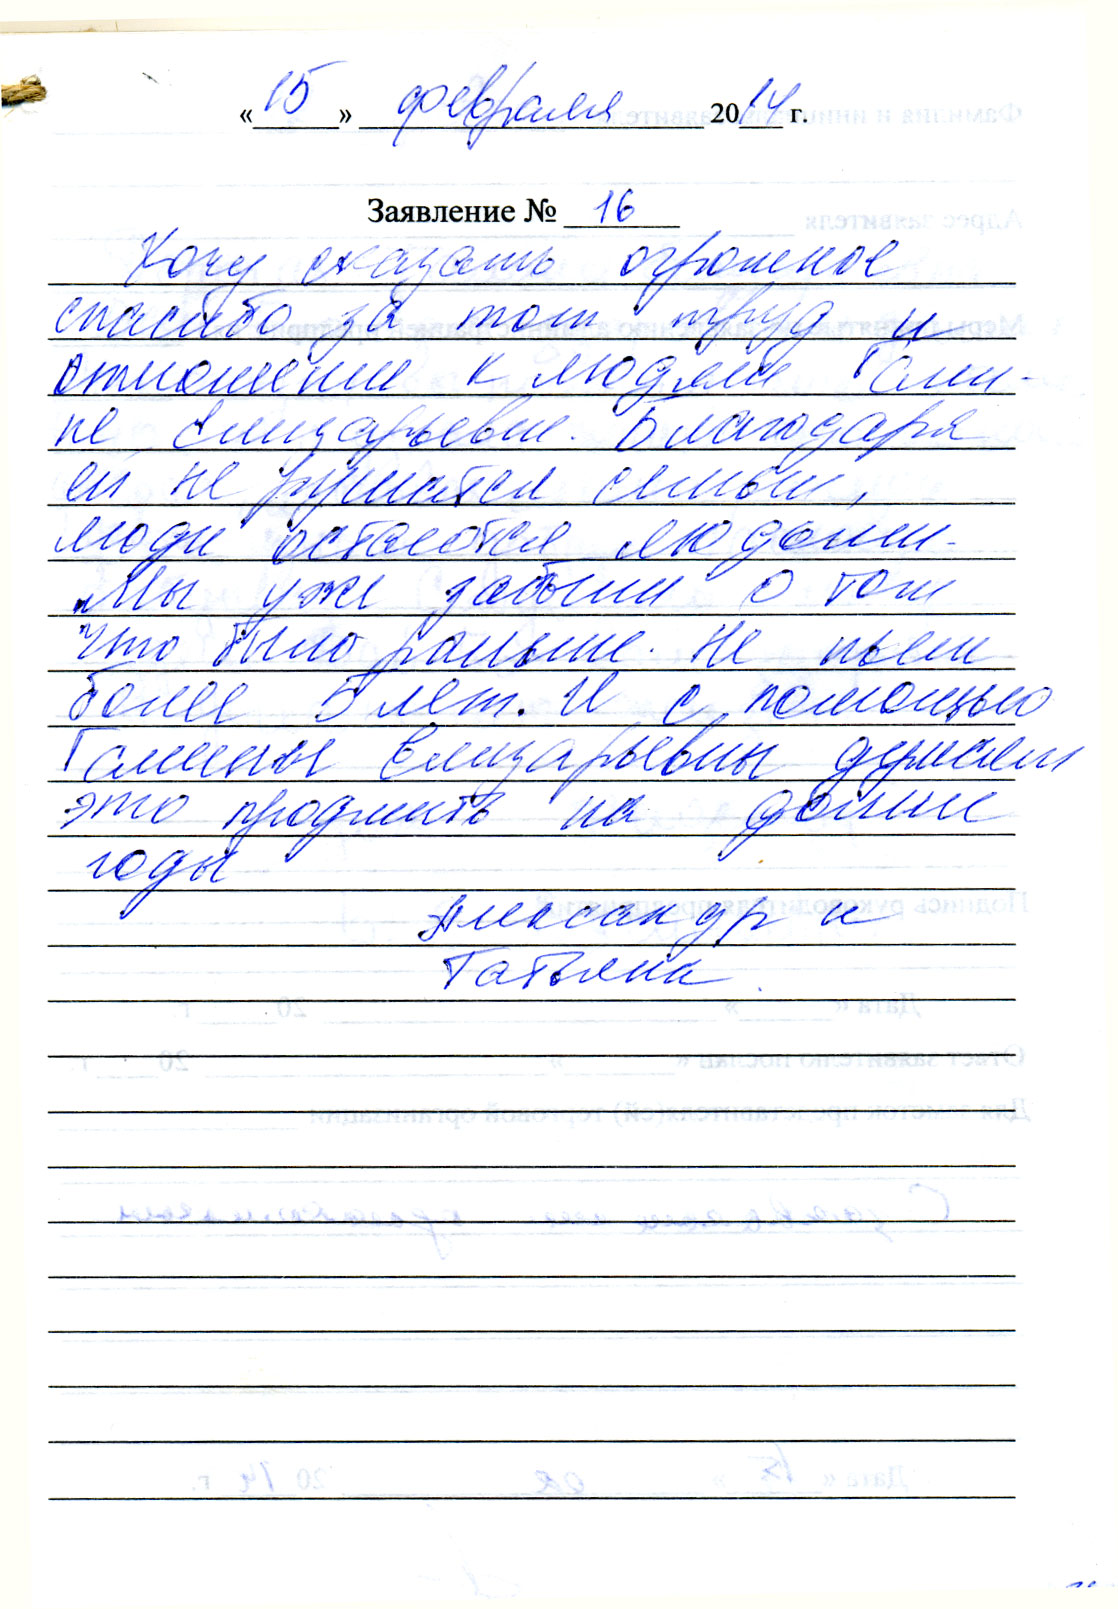 «15» февраля 2014 г.
Заявление № 16
Хочу сказать огромное
спасибо за тот труд и
отношение к людям Гали-
не Елизарьевне. Благодаря
ей не рушатся семьи,
люди остаются людьми.
Мы уже забыли о том
что было раньше. Не пьем
более 5 лет. И с помощью
Галины Елизарьевны думаем
это продлить на долгие
годы
Александр и
Татьяна.